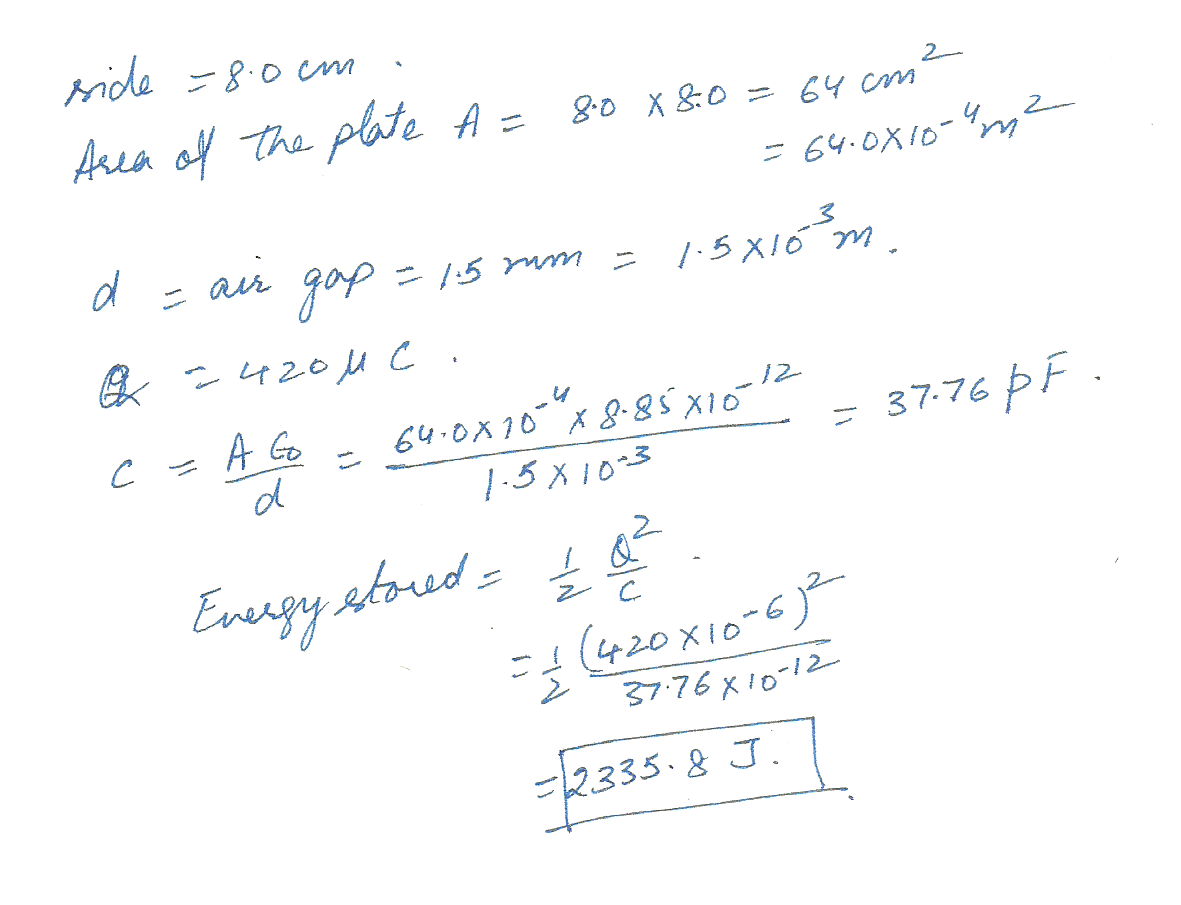 side = 8.0 cm .
Area of the plate A = 8.0 x 8.0 = 64 cm²
= 64.0x10⁻⁴m²
d = air gap = 1.5 mm = 1.5 x10⁻³m .
Q = 420 μ C .
C = A ε₀ / d = 64.0x10⁻⁴ x 8.85 x10⁻¹² / 1.5 x 10⁻³ = 37.76 pF .
Energy stored = 1/2 Q²/C .
= 1/2 (420 x10⁻⁶)² / 37.76 x10⁻¹²
= 2335.8 J .